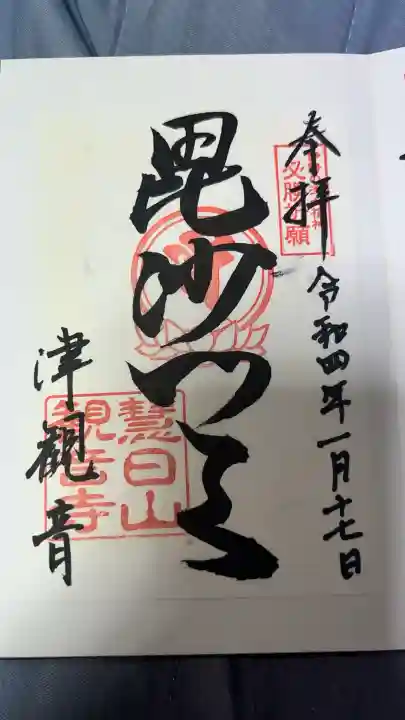 奉拝
令和四年一月十七日
必勝祈願
毘沙门天
津観音
慧日山
観音寺